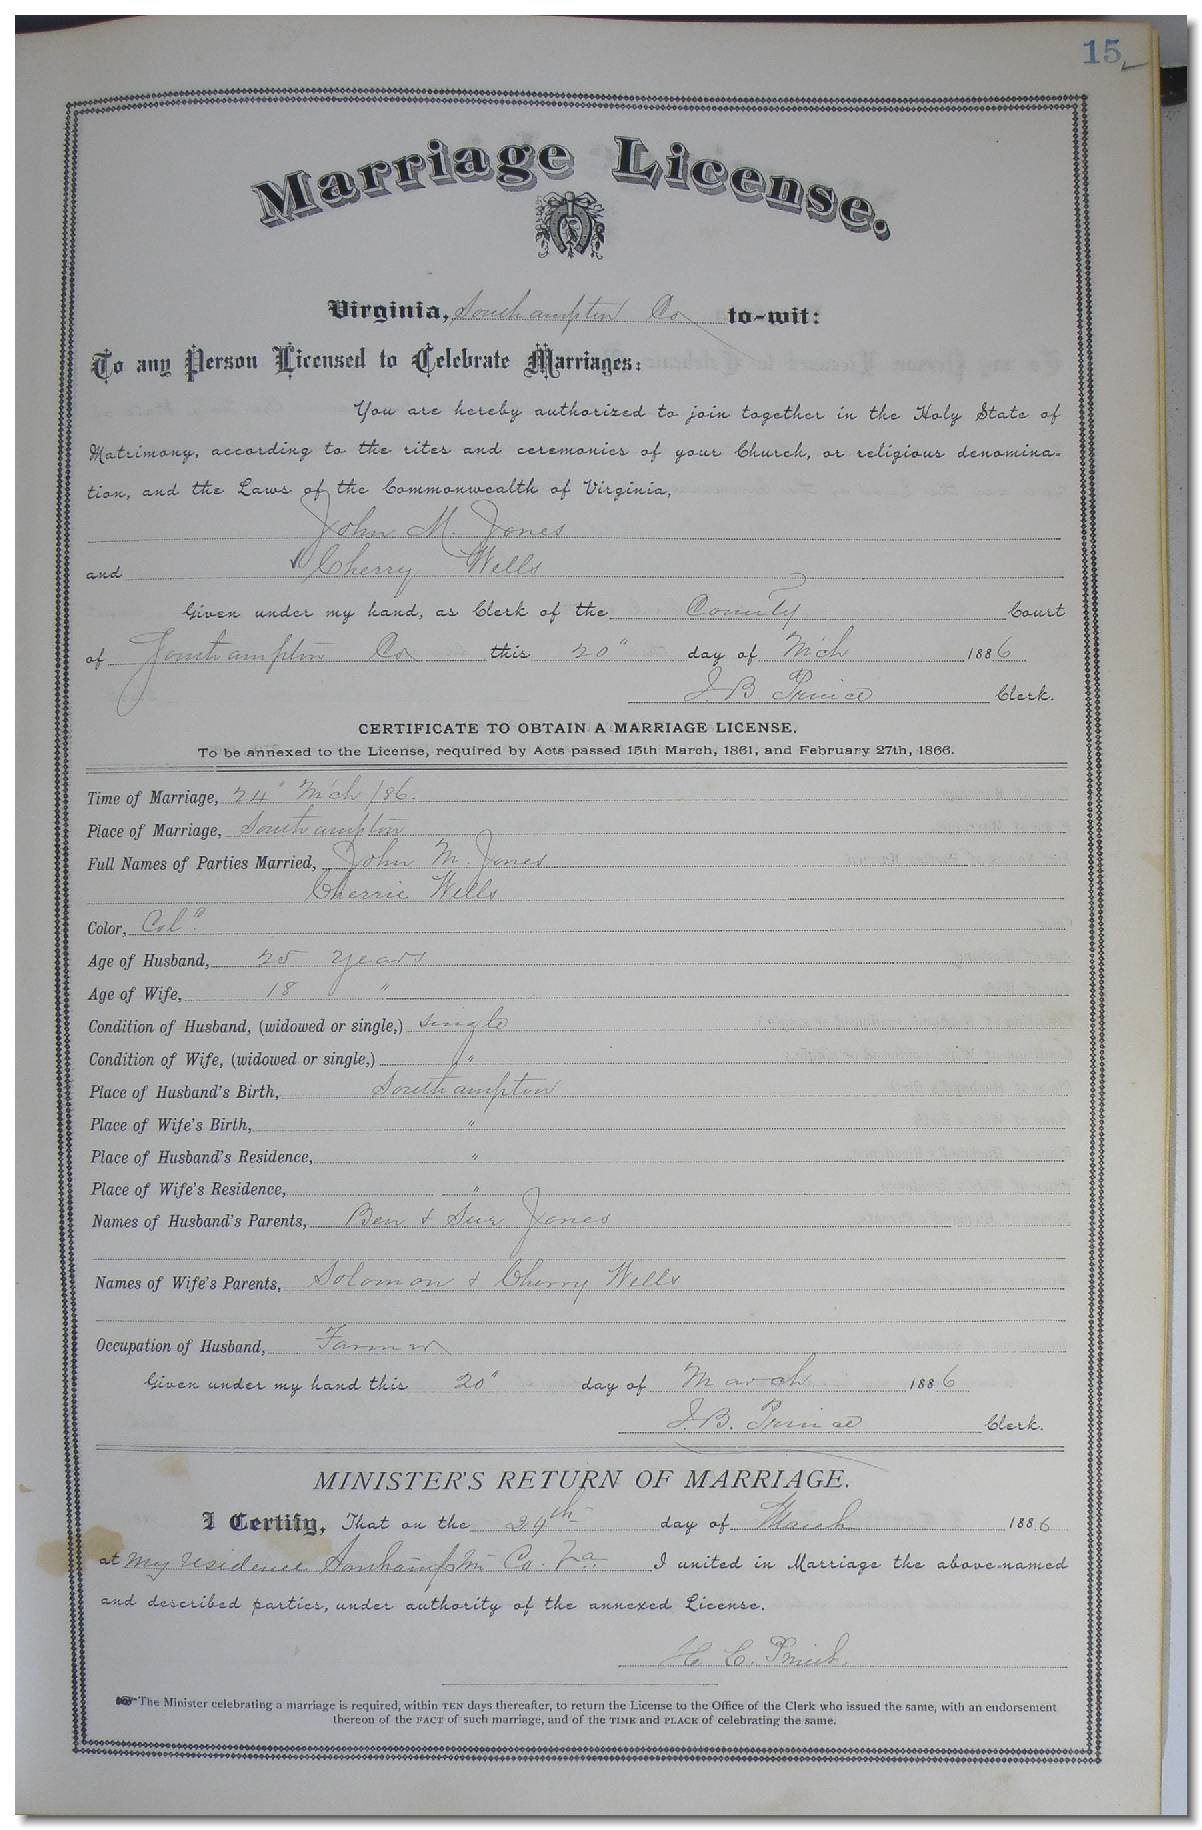 15
Marriage License.
Virginia, Southampton Co to-wit:
To any Person Licensed to Celebrate Marriages:
You are hereby authorized to join together in the Holy State of
Matrimony, according to the rites and ceremonies of your Church, or religious denomina-
tion, and the Laws of the Commonwealth of Virginia,
John M. Jones
and Cherry Wells
Given under my hand, as Clerk of the County Court
of Southampton Co this 20" day of Mch 1886
J. B. Prince Clerk.
CERTIFICATE TO OBTAIN A MARRIAGE LICENSE.
To be annexed to the License, required by Acts passed 15th March, 1861, and February 27th, 1866.
Time of Marriage, 24" Mch /86.
Place of Marriage, Southampton
Full Names of Parties Married, John M. Jones
Cherrie Wells
Color, Cold.
Age of Husband, 25 years
Age of Wife, 18 "
Condition of Husband, (widowed or single,) single
Condition of Wife, (widowed or single,) "
Place of Husband's Birth, Southampton
Place of Wife's Birth, "
Place of Husband's Residence, "
Place of Wife's Residence, "
Names of Husband's Parents, Ben & Sue Jones
Names of Wife's Parents, Solomon & Cherry Wells
Occupation of Husband, Farmer
Given under my hand this 20" day of March 1886
J. B. Prince Clerk.
MINISTER'S RETURN OF MARRIAGE.
I Certify, That on the day of March 1886
at my residence Southampton Co. Va. I united in Marriage the above-named
and described parties, under authority of the annexed License.
H. C.
The Minister celebrating a marriage is required, within TEN days thereafter, to return the License to the Office of the Clerk who issued the same, with an endorsement
thereon of the FACT of such marriage, and of the TIME and PLACE of celebrating the same.